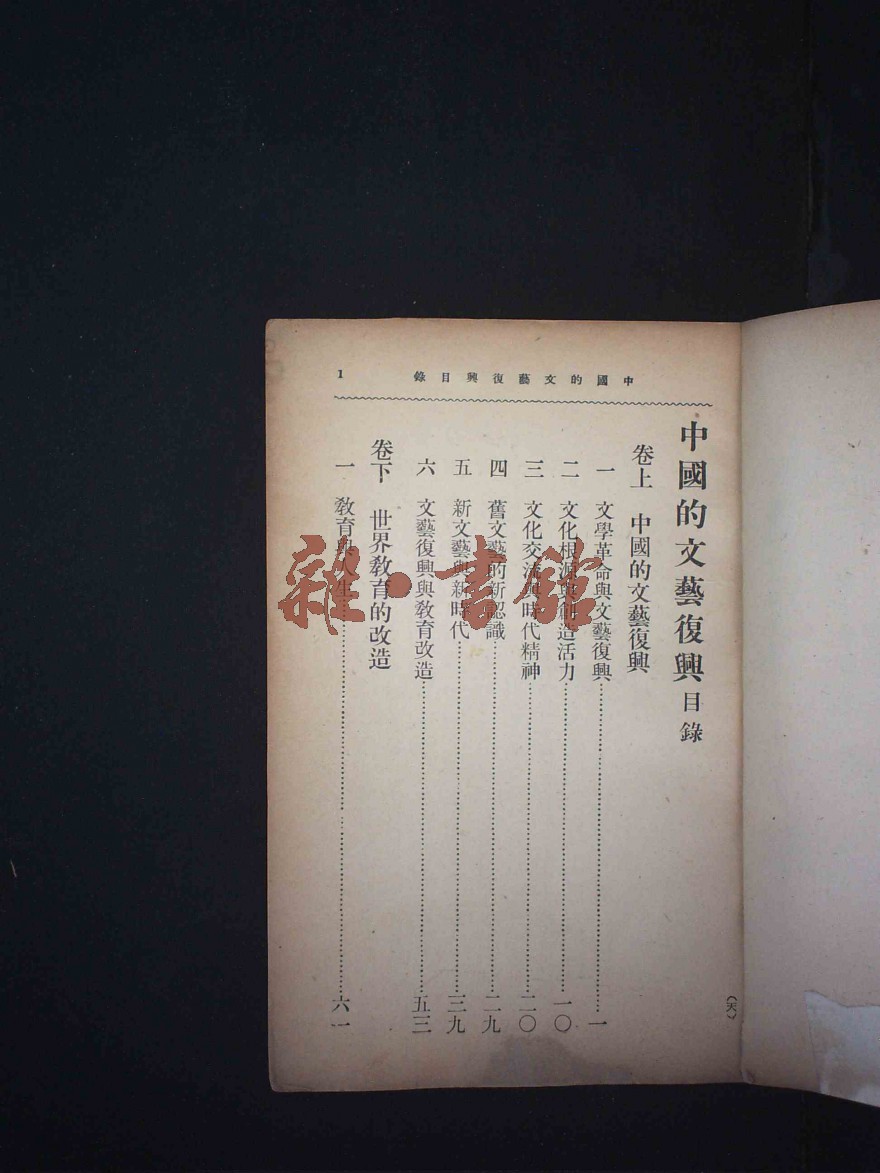 中國的文藝復興目錄 1
中國的文藝復興目錄
卷上 中國的文藝復興
一 文學革命與文藝復興 一
二 文化根源與創造活力 一〇
三 文化交流與時代精神 二〇
四 舊文藝的新認識 二九
五 新文藝與新時代 三九
六 文藝復興與敎育改造 五三
卷下 世界敎育的改造
一 敎育與人生 六一
(天)
雜·書館